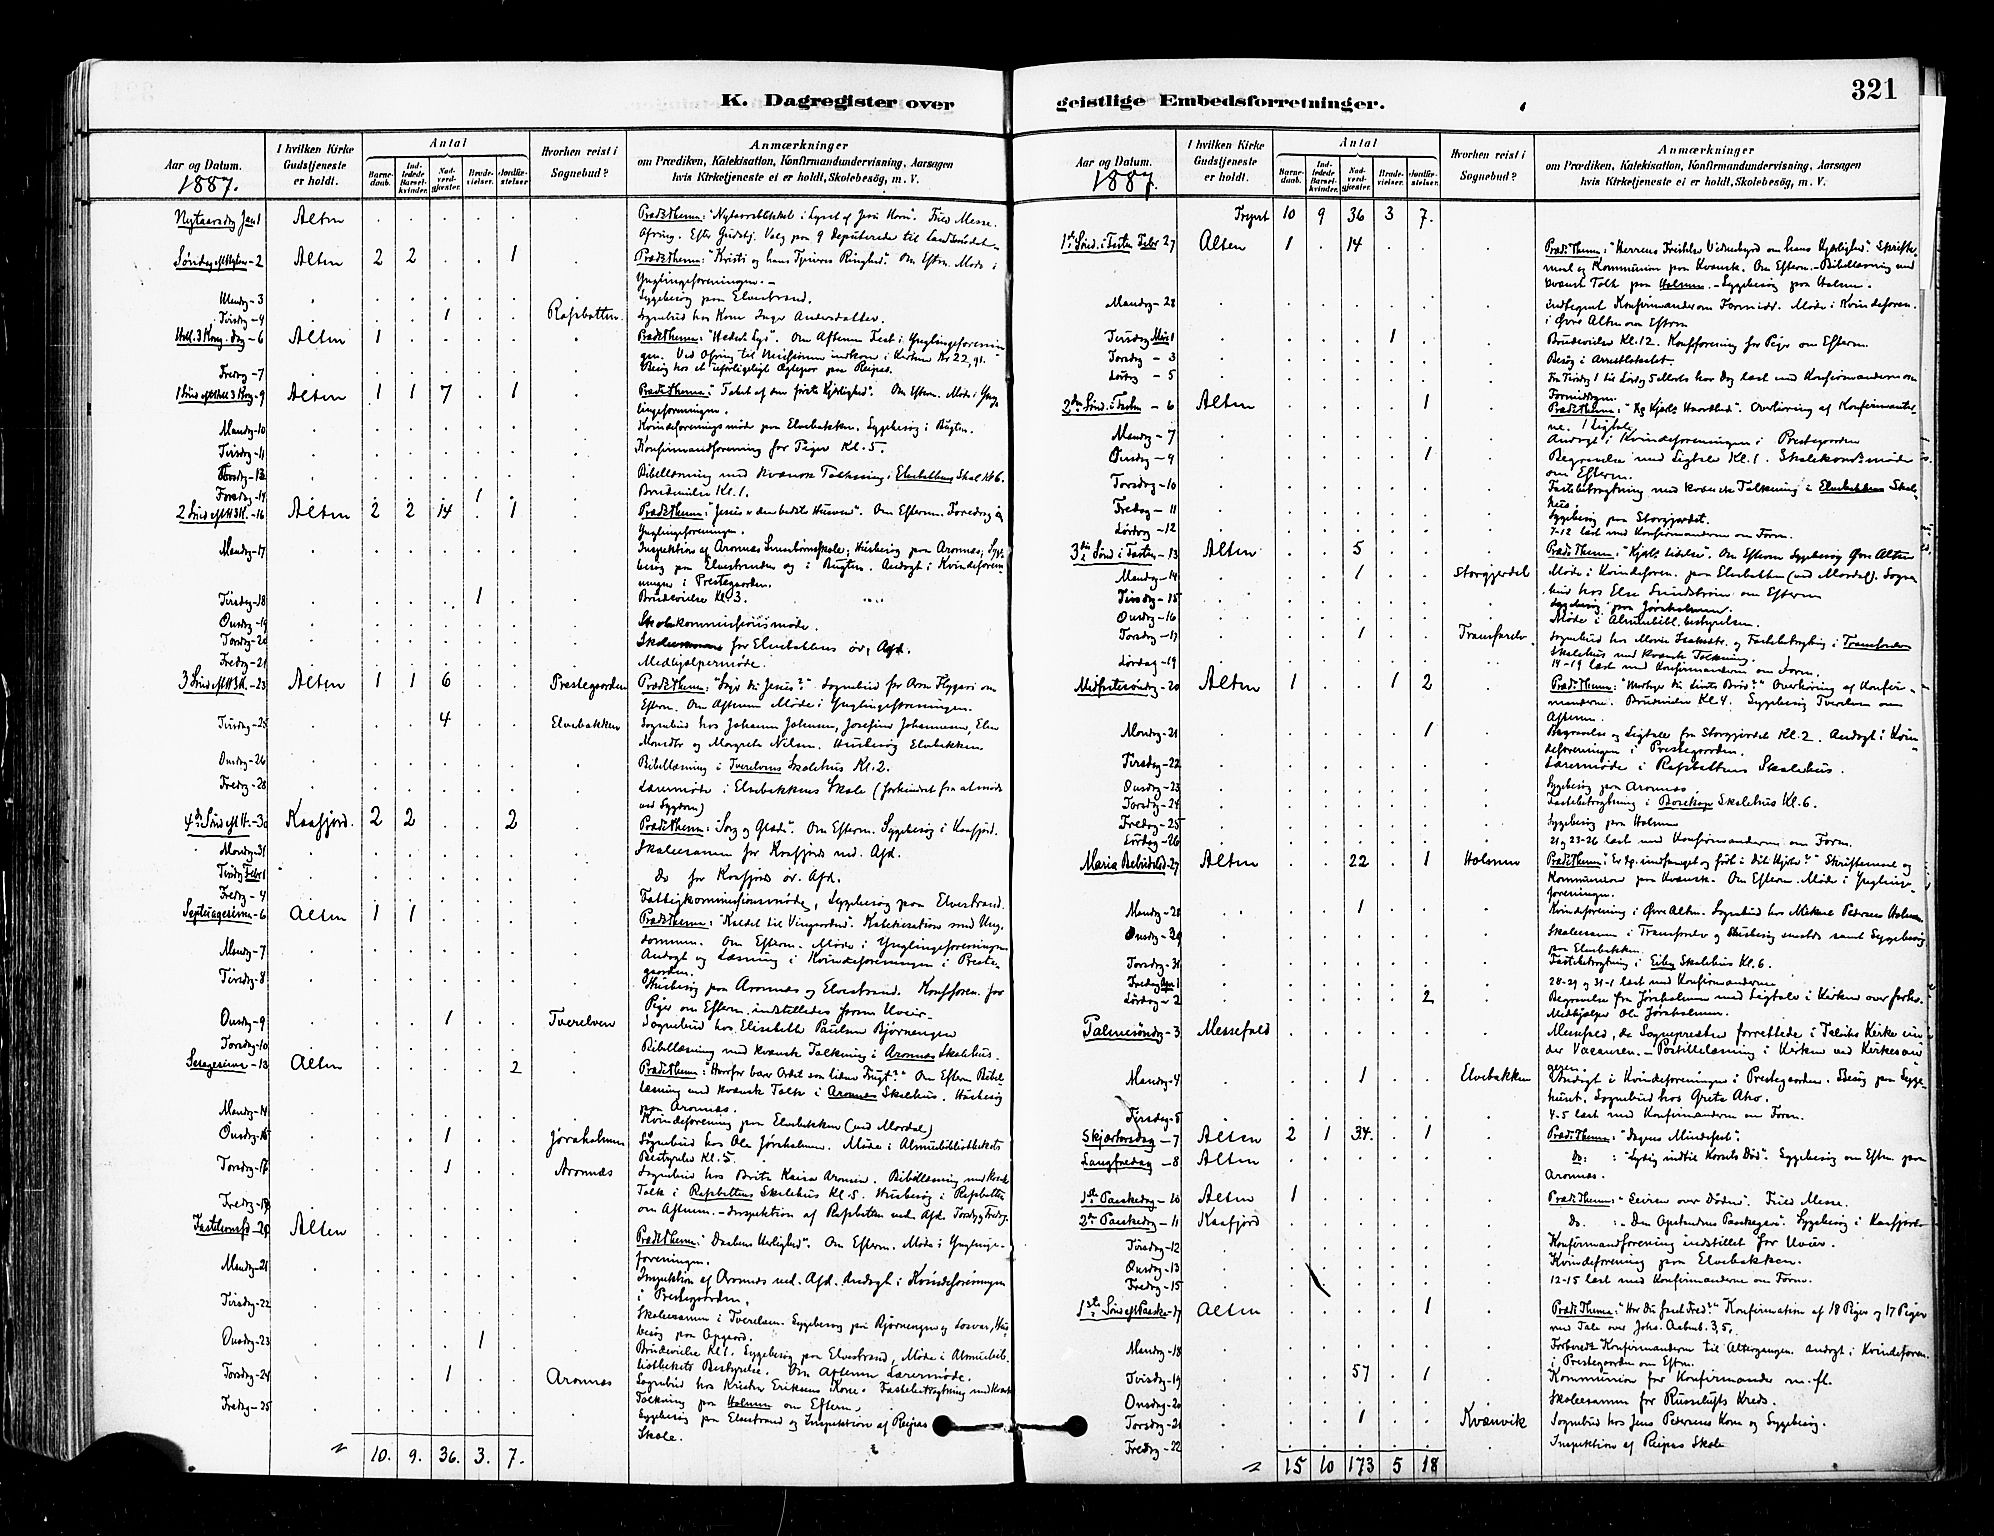 K. Dagregister over
Aar og Datum.
1887.
I hvilken Kirke Gudstjeneste er holdt.
Antal
Barne-daab.
Ind-ledede Barsel-kvinder.
Nad-verd-gjester.
Brude-vielser.
Jordfæ-stelser
Hvorhen reist i Sognebud?
Anmærkninger
om Prædiken, Katekisation, Konfirmandundervisning, Aarsagen
hvis Kirketjeneste ei er holdt, Skolebesøg, m. V.
Nytaarsdag Jan 1 Alten
Præd. Thema: "Nytaarsblikket i Lyset af Jesu Korn". Fuld Messe.
Ofring. Efter Gudstj. Valg paa 9 Deputerede til
Søndag eft Nytaar - 2 Alten 2 2 1
Præd. Thema: "Kristi og hans Ringhed". Om Eftm. Møde i
Ynglingeforeningen.
Mandag - 3
Sygebesøg paa Elvestrand.
Tirsdag - 4 1 Rafsbotten
Sognebud hos Kone Inger Andersdatter.
Hell. 3 Kong. dag - 6 Alten 1
Præd. Thema: "Hedn. Lys". Om Aftenen Fest i Ynglingeforenin-
gen. Ved Ofring til Missionen indkom i Kirken Kr 22,91.
Fredag - 7
1 Sønd eft Hell 3 Kong - 9 Alten 1 1 7 1
Præd. Thema: "Tabet af den første Kjærlighed". Om Eftm. Møde i Yng-
lingeforeningen.
Mandag - 10
Kvindeforeningsmøde paa Elvebakken. Sygebesøg i Bugten.
Tirsdag - 11
Konfirmandforening for Piger Kl. 5.
Torsdag - 13
Bibellæsning med kvænsk Talkning i Elvebakkens Skol Kl 6.
Brudevielse Kl. 1.
2 Sønd eft H 3 K. - 16 Alten 2 2 14 1
Præd. Thema: "Jesus er den bedste Husven". Om Eftm. Foredrag i
Ynglingeforeningen.
Mandag - 17
Inspektion af Aronnæs Smaabørnsskole; Husbesøg paa Aronnæs; Syge-
besøg paa Elvestranden og i Bugten. Andagt i Kvindeforen-
ingen i Prestegaarden.
Tirsdag - 18 1
Brudevielse Kl. 3.
Onsdag - 19
Skolekommissionsmøde.
Torsdag - 20
for Elvebakkens øv. Afd.
Fredag - 21
Medhjælpermøde.
3 Sønd eft H 3 K. - 23 Alten 1 1 6 Prestegaarden
Præd. Thema: "Søge du Jesus?" Sognebud for
Eftm. Om Aftenen Møde i Ynglingeforeningen.
Tirsdag - 25 4 Elvebakken
Sognebud hos Johanne Johnsen, Josefine Johannesen, Elen
og Margrete Nilsen. Husbesøg Elvebakken
Onsdag - 26
Bibellæsning i Tverelvens Skolehus Kl. 2.
Fredag - 28
Lærermøde i Elvebakkens Skole (forhindret fra at møde
ved Sygdom)
4de Sønd eft H. - 30 Kaafjord. 2 2 2
Præd. Thema: "Sorg og Glæde". Om Eftm. Sygebesøg i Kaafjord.
Mandag - 31
Skoleexamen for Kaafjords ned. Afd.
Tirsdag Febr 1
Do for Kaafjords øv. Afd.
Fredag - 4
Fattigkommissionsmøde, Sygebesøg paa Elvestrand.
Septuagesima - 6 Alten 1 1
Præd. Thema: "Kaldet til Vingaarden". Katekisation med Ung-
dommen. Om Eftm. Møde i Ynglingeforeningen
Mandag - 7
Andagt og Læsning i Kvindeforeningen i Preste-
gaarden.
Tirsdag - 8
Husbesøg paa Aronnæs og Elvestrand. Konfforen. for
Piger om Eftm. indstilledes paa Grund Uveir.
Onsdag - 9 1 Tverelven
Sognebud hos Elisabeth Paulsen Bjørnengen
Torsdag - 10
Bibellæsning med kvænsk Talkning i Aronnæs Skolehus.
Sexagesima - 13 Alten 2
Præd. Thema: "Hvorfor bær Ordet saa liden Frugt?" Om Eftm Bibel
læsning med kvænsk Talk i Aronnæs Skolehus. Husbesøg
paa Aronnæs.
Mandag - 14
Kvindeforening paa Elvebakken (ved Mordal)
Onsdag - 16 1 Jøraholmen
Sognebud hos Ole Jøraholmen. Møde i Almuebibliotekets
Bestyrelse Kl. 5.
Torsdag - 17 1 Aronnæs
Sognebud hos Brita Kaisa Aronsen. Bibellæsning med kvænsk
Talk i Rafsbottens Skolehus Kl. 5. Husbesøg i Rafsbotten
Fredag - 18
om Aftenen. - Inspektion af Rafsbotten ned. Afd. Torsdag, Fredag.
Fastelavnss - 20 Alten
Præd. Thema: "Daabens Herlighed". Om Eftm. Møde i Ynglinge-
foreningen.
Mandag - 21
Inspektion af Aronnæs ned. Afd. Andagt i Kvindeforeningen
i Prestegaarden.
Tirsdag - 22
Skoleexamen i Tverelven. Sygebesøg paa Bjørnengen og Losvar, Hus-
besøg paa Opgaard.
Onsdag - 23 1
Brudevielse Kl 1. Sygebesøg paa Elvestrand, Møde i Almuebib-
liothekets Bestyrelse. Om Aftenen Lærermøde.
Torsdag - 24 1 Aronnæs
Sognebud hos Kristen Eriksens Kone. Fastebetragtning med kvænsk
Talkning paa Holmen om Eftm.
Fredag - 25
Sygebesøg paa Elvestrand og Inspektion af Reipas
Skole.
10. 9. 36. 3. 7.
geistlige Embedsforretninger.
321
Aar og Datum.
1887.
I hvilken Kirke Gudstjeneste er holdt.
Antal
Barne-daab.
Ind-ledede Barsel-kvinder.
Nad-verd-gjester.
Brude-vielser.
Jordfæ-stelser.
Hvorhen reist i Sognebud?
Anmærkninger
om Prædiken, Katekisation, Konfirmandundervisning, Aarsagen
hvis Kirketjeneste ei er holdt, Skolebesøg, m. V.
10 9 36 3 7.
1ste Sønd. i Fasten Febr 27 Alten 1 14
Præd. Thema: "Herrens Fristelse Vidnesbyrd om hans Kjærlighed". Skrifte-
maal og Kommunion paa Kvænsk. Om Eftm. - Bibellæsning med
kvænsk Talk paa Holmen. - Sygebesøg paa Holmen.
Mandag - 28
Indtegnet Konfirmander om Formidd. Møde i Kvindeforen.
i Øvre Alten om Eftm
Tirsdag Mars 1 1
Brudevielse Kl. 12. Konfforening for Piger om Eftm.
Torsdag - 3
Besøg i Arrestlokalet.
Lørdag - 5
Fra Tirsdag 1 til Lørdag 5 Marts hver Dag læst med Konfirmanderne om
Formiddagen.
2den Sønd. i Fasten - 6 Alten 1
Overhøring af Konfirmanter
ne. 1 Ligtale.
Mandag - 7
Andagt i Kvindeforeningen i Prestegaarden
Onsdag - 9 1
Begravelse med Ligtale Kl. 1. Skolekom. møde
om Eftm.
Torsdag - 10
Fastebetragtning med kvænsk Talkning i Elvebakkens Skole-
hus
Fredag - 11
Sygebesøg paa Storgjordet.
Lørdag - 12
7-12 læst med Konfirmanderne om Form.
3die Sønd i Fasten - 13 Alten 5
Om Eftm Sygebesøg Øvre Alten
Mandag - 14 1 Storgjordet
Møde i Kvindeforen. paa Elvebakken (ved Mordal). Sogne-
bud hos Else Lundstrøm om Eftm
Tirsdag - 15
Sygebesøg paa Jøraholmen.
Onsdag - 16
Møde i Almuebibl.bestyrelsen.
Torsdag - 17 1 Tranfarelv
Sognebud hos Marie Isaksdtr. og Fastebetragtng i Tranfarelvens
Skolehus med kvænsk Talkning.
Lørdag - 19
14-19 læst med Konfirmanderne om Form.
Midfastesøndag - 20 Alten 1 1 2
Præd. Thema: "Modtager du Livets Brød?" Overhøring af Konfir-
manderne. Brudevielse Kl 4. Sygebesøg Tverelven om
Aftenen.
Mandag - 21 1
Begravelse og Ligtale fra Storgjordet Kl. 2. Andagt i Kvin-
deforeningen i Prestegaarden.
Tirsdag - 22
Lærermøde i Rafsbottens Skolehus.
Onsdag - 23
Sygebesøg paa Aronnæs.
Torsdag - 24
Fastebetragtning i Bosekop Skolehus Kl. 6.
Fredag - 25
Sygebesøg paa Holmen
Lørdag - 26
21 og 23-26 læst med Konfirmanderne om Form.
Maria Bebudelsd - 27 Alten 22 1 Holmen
Skriftemaal og
Kommunion paa Kvænsk. Om Eftm. Møde i Ynglinge-
foreningen.
Mandag - 28 1
Kvindeforening i Øvre Alten. Sognebud hos Mikkel Pedersen Holmen.
Onsdag - 30
Skoleexam i Tranfarelv og Husbesøg smstds samt Sygebesøg
paa Elvebakken.
Torsdag - 31
Fastebetragtning i Eiby Skolehus Kl. 6.
Fredag Apr 1
28-29 og 31-1 læst med Konfirmanderne
Lørdag - 2 2
Begravelse fra Jøraholmen med Ligtale i Kirken over forhv.
Medhjælper Ole Jøraholmen.
Palmesøndag - 3 Messefald
Messefald, da Sognepresten forrettede i Talviks Kirke un-
der Vacansen. - Postillelæsning i Kirken ved Kirkesan-
geren.
Mandag - 4 1 Elvebakken
Andagt i Kvindeforeningen i Prestegaarden. Besøg paa Syge-
huset. Sognebud hos Grete Aho.
Tirsdag - 5
4-5 læst med Konfirmanderne om Form.
Skjærtorsdag - 7 Alten 2 1 34. 1
Præd. Thema: "Dagens Mindefest".
Langfredag - 8 Alten
Do: : "Lydig indtil Korsets Død". Sygebesøg om Eftm. paa
Aronnæs.
1ste Paaskedag - 10 Alten 1
Præd. Thema: "Seiren over Døden". Fuld Messe.
2den Paaskedag - 11 Kaafjord
Do. : "Den Opstandnes Paaskegave". Sygebesøg i Kaafjord.
Tirsdag - 12
Konfirmandforening indstillet for Uveir.
Onsdag - 13
Kvindeforening paa Elvebakken.
Fredag - 15
12-15 læst med Konfirmanderne om Form.
1ste Sønd eft Paaske - 17 Alten 1
Præd. Thema: "Har Du fundet Fred?" Konfirmation af 18 Piger og 17 Piger
med Tale over Johs. Aabenb. 3,5.
Mandag - 18
Forberedt Konfirmanderne til Altergangen. Andagt i Kvindeforen.
i Prestegaarden om Eftm.
Tirsdag - 19 57 1
Kommunion for Konfirmander m. fl.
Onsdag - 20
Skoleexamen for Russelufts Kreds.
Torsdag - 21 1 Kvænvik
Sognebud hos Jens Pedersens Kone og Sygebesøg.
Fredag - 22
Inspektion af Reipas Skole
15 10 173 5 18